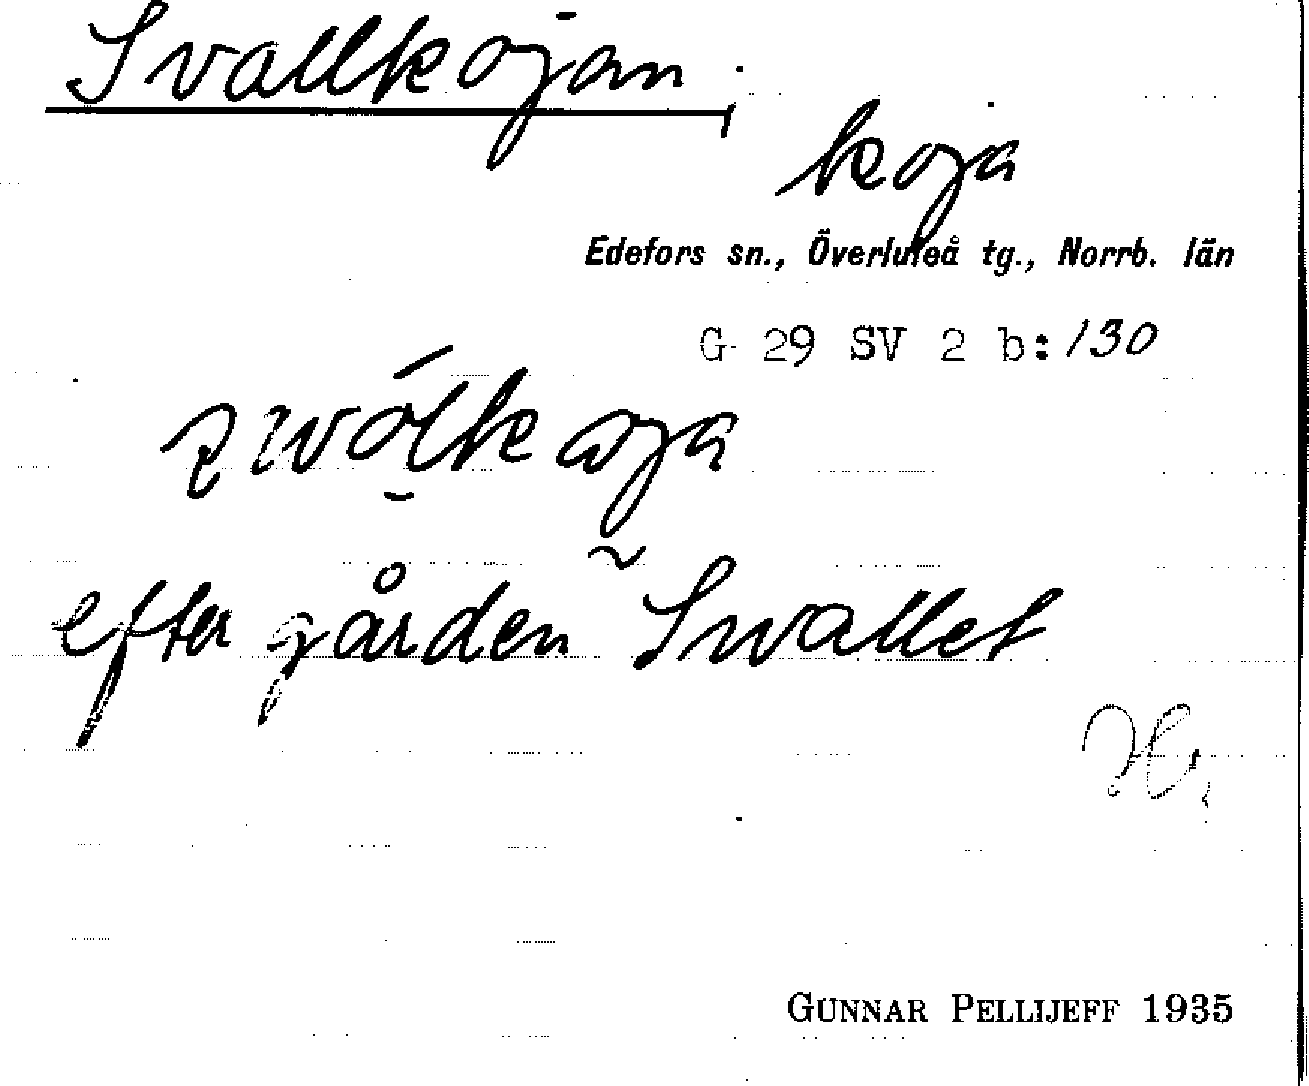 Svallkojan
koja
Edefors sn., Överluleå tg., Norrb. län
G 29 SV 2 b:130
efter gården Svallet
GUNNAR PELLIJEFF 1935